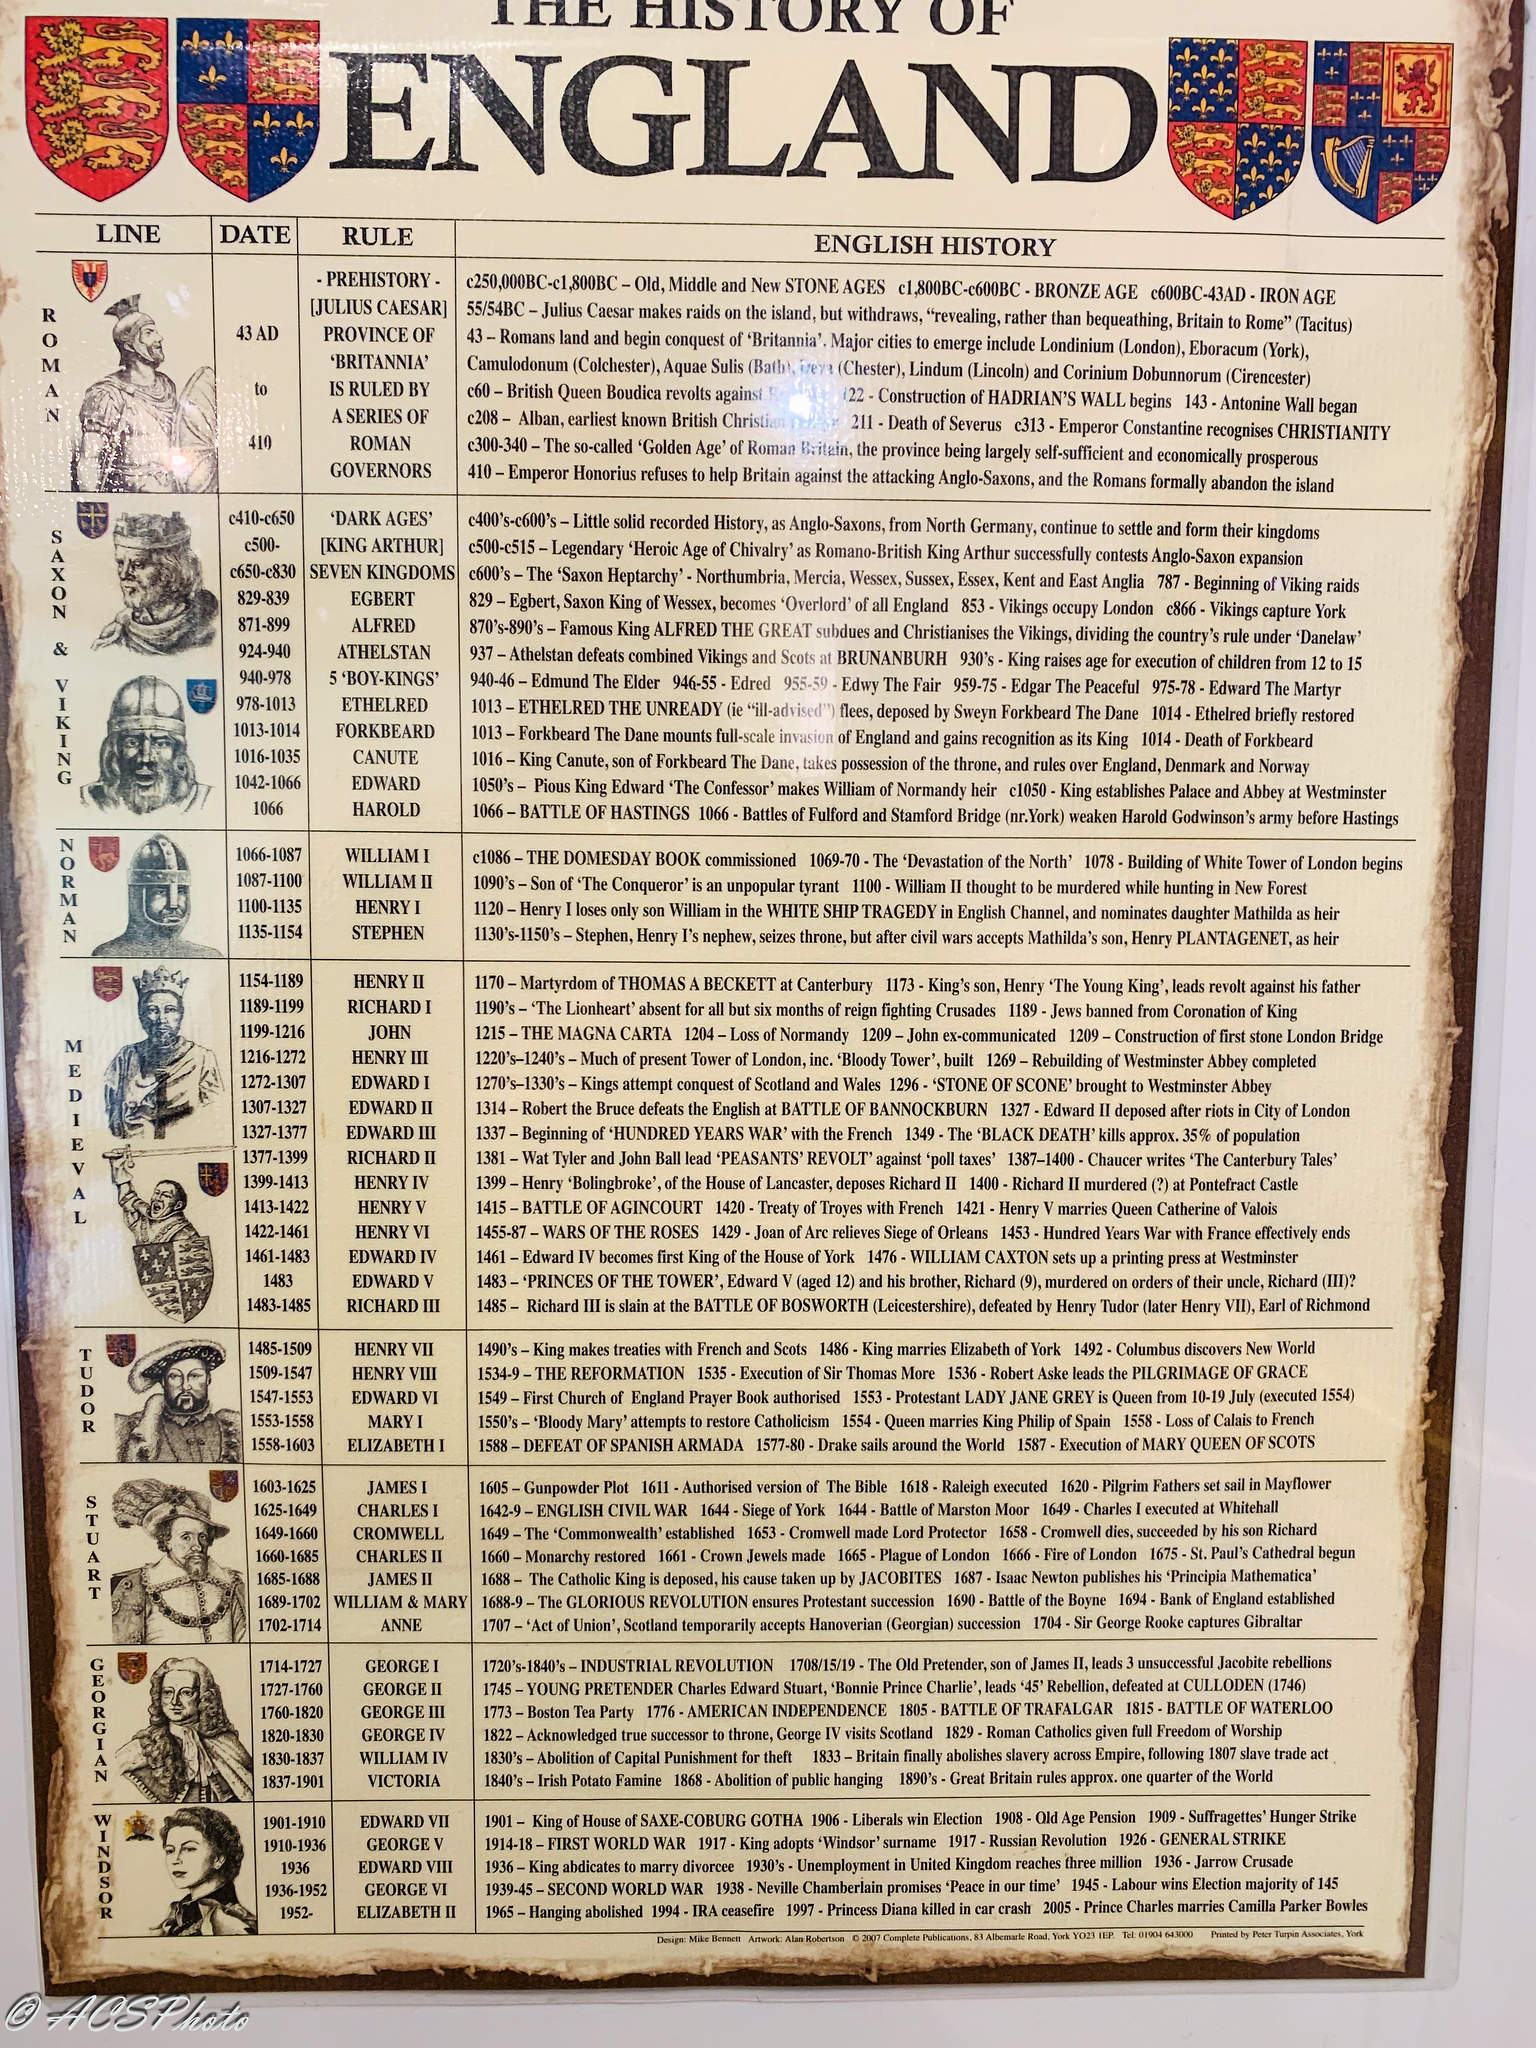 THE HISTORY OF
ENGLAND
LINE DATE RULE ENGLISH HISTORY
ROMAN
- PREHISTORY - c250,000BC-c1,800BC – Old, Middle and New STONE AGES c1,800BC-c600BC - BRONZE AGE c600BC-43AD - IRON AGE
[JULIUS CAESAR] 55/54BC – Julius Caesar makes raids on the island, but withdraws, “revealing, rather than bequeathing, Britain to Rome” (Tacitus)
43 AD PROVINCE OF 43 – Romans land and begin conquest of ‘Britannia’. Major cities to emerge include Londinium (London), Eboracum (York),
‘BRITANNIA’ Camulodonum (Colchester), Aquae Sulis (Bath), Deva (Chester), Lindum (Lincoln) and Corinium Dobunnorum (Cirencester)
to IS RULED BY c60 – British Queen Boudica revolts against 122 - Construction of HADRIAN’S WALL begins 143 - Antonine Wall began
A SERIES OF c208 – Alban, earliest known British Christian 211 - Death of Severus c313 - Emperor Constantine recognises CHRISTIANITY
410 ROMAN c300-340 – The so-called ‘Golden Age’ of Roman Britain, the province being largely self-sufficient and economically prosperous
GOVERNORS 410 – Emperor Honorius refuses to help Britain against the attacking Anglo-Saxons, and the Romans formally abandon the island
SAXON & VIKING
c410-c650 ‘DARK AGES’ c400’s-c600’s – Little solid recorded History, as Anglo-Saxons, from North Germany, continue to settle and form their kingdoms
c500- [KING ARTHUR] c500-c515 – Legendary ‘Heroic Age of Chivalry’ as Romano-British King Arthur successfully contests Anglo-Saxon expansion
c650-c830 SEVEN KINGDOMS c600’s – The ‘Saxon Heptarchy’ - Northumbria, Mercia, Wessex, Sussex, Essex, Kent and East Anglia 787 - Beginning of Viking raids
829-839 EGBERT 829 – Egbert, Saxon King of Wessex, becomes ‘Overlord’ of all England 853 - Vikings occupy London c866 - Vikings capture York
871-899 ALFRED 870’s-890’s – Famous King ALFRED THE GREAT subdues and Christianises the Vikings, dividing the country’s rule under ‘Danelaw’
924-940 ATHELSTAN 937 – Athelstan defeats combined Vikings and Scots at BRUNANBURH 930’s - King raises age for execution of children from 12 to 15
940-978 5 ‘BOY-KINGS’ 940-46 – Edmund The Elder 946-55 - Edred 955-59 - Edwy The Fair 959-75 - Edgar The Peaceful 975-78 - Edward The Martyr
978-1013 ETHELRED 1013 – ETHELRED THE UNREADY (ie “ill-advised”) flees, deposed by Sweyn Forkbeard The Dane 1014 - Ethelred briefly restored
1013-1014 FORKBEARD 1013 – Forkbeard The Dane mounts full-scale invasion of England and gains recognition as its King 1014 - Death of Forkbeard
1016-1035 CANUTE 1016 – King Canute, son of Forkbeard The Dane, takes possession of the throne, and rules over England, Denmark and Norway
1042-1066 EDWARD 1050’s – Pious King Edward ‘The Confessor’ makes William of Normandy heir c1050 - King establishes Palace and Abbey at Westminster
1066 HAROLD 1066 – BATTLE OF HASTINGS 1066 - Battles of Fulford and Stamford Bridge (nr.York) weaken Harold Godwinson’s army before Hastings
NORMAN
1066-1087 WILLIAM I c1086 – THE DOMESDAY BOOK commissioned 1069-70 - The ‘Devastation of the North’ 1078 - Building of White Tower of London begins
1087-1100 WILLIAM II 1090’s – Son of ‘The Conqueror’ is an unpopular tyrant 1100 - William II thought to be murdered while hunting in New Forest
1100-1135 HENRY I 1120 – Henry I loses only son William in the WHITE SHIP TRAGEDY in English Channel, and nominates daughter Mathilda as heir
1135-1154 STEPHEN 1130’s-1150’s – Stephen, Henry I’s nephew, seizes throne, but after civil wars accepts Mathilda’s son, Henry PLANTAGENET, as heir
MEDIEVAL
1154-1189 HENRY II 1170 – Martyrdom of THOMAS A BECKETT at Canterbury 1173 - King’s son, Henry ‘The Young King’, leads revolt against his father
1189-1199 RICHARD I 1190’s – ‘The Lionheart’ absent for all but six months of reign fighting Crusades 1189 - Jews banned from Coronation of King
1199-1216 JOHN 1215 – THE MAGNA CARTA 1204 – Loss of Normandy 1209 – John ex-communicated 1209 – Construction of first stone London Bridge
1216-1272 HENRY III 1220’s–1240’s – Much of present Tower of London, inc. ‘Bloody Tower’, built 1269 – Rebuilding of Westminster Abbey completed
1272-1307 EDWARD I 1270’s–1330’s – Kings attempt conquest of Scotland and Wales 1296 - ‘STONE OF SCONE’ brought to Westminster Abbey
1307-1327 EDWARD II 1314 – Robert the Bruce defeats the English at BATTLE OF BANNOCKBURN 1327 - Edward II deposed after riots in City of London
1327-1377 EDWARD III 1337 – Beginning of ‘HUNDRED YEARS WAR’ with the French 1349 - The ‘BLACK DEATH’ kills approx. 35% of population
1377-1399 RICHARD II 1381 – Wat Tyler and John Ball lead ‘PEASANTS’ REVOLT’ against ‘poll taxes’ 1387–1400 - Chaucer writes ‘The Canterbury Tales’
1399-1413 HENRY IV 1399 – Henry ‘Bolingbroke’, of the House of Lancaster, deposes Richard II 1400 - Richard II murdered (?) at Pontefract Castle
1413-1422 HENRY V 1415 – BATTLE OF AGINCOURT 1420 - Treaty of Troyes with French 1421 - Henry V marries Queen Catherine of Valois
1422-1461 HENRY VI 1455-87 – WARS OF THE ROSES 1429 - Joan of Arc relieves Siege of Orleans 1453 - Hundred Years War with France effectively ends
1461-1483 EDWARD IV 1461 – Edward IV becomes first King of the House of York 1476 - WILLIAM CAXTON sets up a printing press at Westminster
1483 EDWARD V 1483 – ‘PRINCES OF THE TOWER’, Edward V (aged 12) and his brother, Richard (9), murdered on orders of their uncle, Richard (III)?
1483-1485 RICHARD III 1485 – Richard III is slain at the BATTLE OF BOSWORTH (Leicestershire), defeated by Henry Tudor (later Henry VII), Earl of Richmond
TUDOR
1485-1509 HENRY VII 1490’s – King makes treaties with French and Scots 1486 - King marries Elizabeth of York 1492 - Columbus discovers New World
1509-1547 HENRY VIII 1534-9 – THE REFORMATION 1535 - Execution of Sir Thomas More 1536 - Robert Aske leads the PILGRIMAGE OF GRACE
1547-1553 EDWARD VI 1549 – First Church of England Prayer Book authorised 1553 - Protestant LADY JANE GREY is Queen from 10-19 July (executed 1554)
1553-1558 MARY I 1550’s – ‘Bloody Mary’ attempts to restore Catholicism 1554 - Queen marries King Philip of Spain 1558 - Loss of Calais to French
1558-1603 ELIZABETH I 1588 – DEFEAT OF SPANISH ARMADA 1577-80 - Drake sails around the World 1587 - Execution of MARY QUEEN OF SCOTS
STUART
1603-1625 JAMES I 1605 – Gunpowder Plot 1611 - Authorised version of The Bible 1618 - Raleigh executed 1620 - Pilgrim Fathers set sail in Mayflower
1625-1649 CHARLES I 1642-9 – ENGLISH CIVIL WAR 1644 - Siege of York 1644 - Battle of Marston Moor 1649 - Charles I executed at Whitehall
1649-1660 CROMWELL 1649 – The ‘Commonwealth’ established 1653 - Cromwell made Lord Protector 1658 - Cromwell dies, succeeded by his son Richard
1660-1685 CHARLES II 1660 – Monarchy restored 1661 - Crown Jewels made 1665 - Plague of London 1666 - Fire of London 1675 - St. Paul’s Cathedral begun
1685-1688 JAMES II 1688 – The Catholic King is deposed, his cause taken up by JACOBITES 1687 - Isaac Newton publishes his ‘Principia Mathematica’
1689-1702 WILLIAM & MARY 1688-9 – The GLORIOUS REVOLUTION ensures Protestant succession 1690 - Battle of the Boyne 1694 - Bank of England established
1702-1714 ANNE 1707 – ‘Act of Union’, Scotland temporarily accepts Hanoverian (Georgian) succession 1704 - Sir George Rooke captures Gibraltar
GEORGIAN
1714-1727 GEORGE I 1720’s-1840’s – INDUSTRIAL REVOLUTION 1708/15/19 - The Old Pretender, son of James II, leads 3 unsuccessful Jacobite rebellions
1727-1760 GEORGE II 1745 – YOUNG PRETENDER Charles Edward Stuart, ‘Bonnie Prince Charlie’, leads ‘45’ Rebellion, defeated at CULLODEN (1746)
1760-1820 GEORGE III 1773 – Boston Tea Party 1776 - AMERICAN INDEPENDENCE 1805 - BATTLE OF TRAFALGAR 1815 - BATTLE OF WATERLOO
1820-1830 GEORGE IV 1822 – Acknowledged true successor to throne, George IV visits Scotland 1829 - Roman Catholics given full Freedom of Worship
1830-1837 WILLIAM IV 1830’s – Abolition of Capital Punishment for theft 1833 – Britain finally abolishes slavery across Empire, following 1807 slave trade act
1837-1901 VICTORIA 1840’s – Irish Potato Famine 1868 - Abolition of public hanging 1890’s - Great Britain rules approx. one quarter of the World
WINDSOR
1901-1910 EDWARD VII 1901 – King of House of SAXE-COBURG GOTHA 1906 - Liberals win Election 1908 - Old Age Pension 1909 - Suffragettes’ Hunger Strike
1910-1936 GEORGE V 1914-18 – FIRST WORLD WAR 1917 - King adopts ‘Windsor’ surname 1917 - Russian Revolution 1926 - GENERAL STRIKE
1936 EDWARD VIII 1936 – King abdicates to marry divorcee 1930’s - Unemployment in United Kingdom reaches three million 1936 - Jarrow Crusade
1936-1952 GEORGE VI 1939-45 – SECOND WORLD WAR 1938 - Neville Chamberlain promises ‘Peace in our time’ 1945 - Labour wins Election majority of 145
1952- ELIZABETH II 1965 – Hanging abolished 1994 - IRA ceasefire 1997 - Princess Diana killed in car crash 2005 - Prince Charles marries Camilla Parker Bowles
Design: Mike Bennett Artwork: Alan Robertson © 2007 Complete Publications, 83 Albemarle Road, York YO23 1EP. Tel: 01904 643000 Printed by Peter Turpin Associates, York
© ACSPhoto